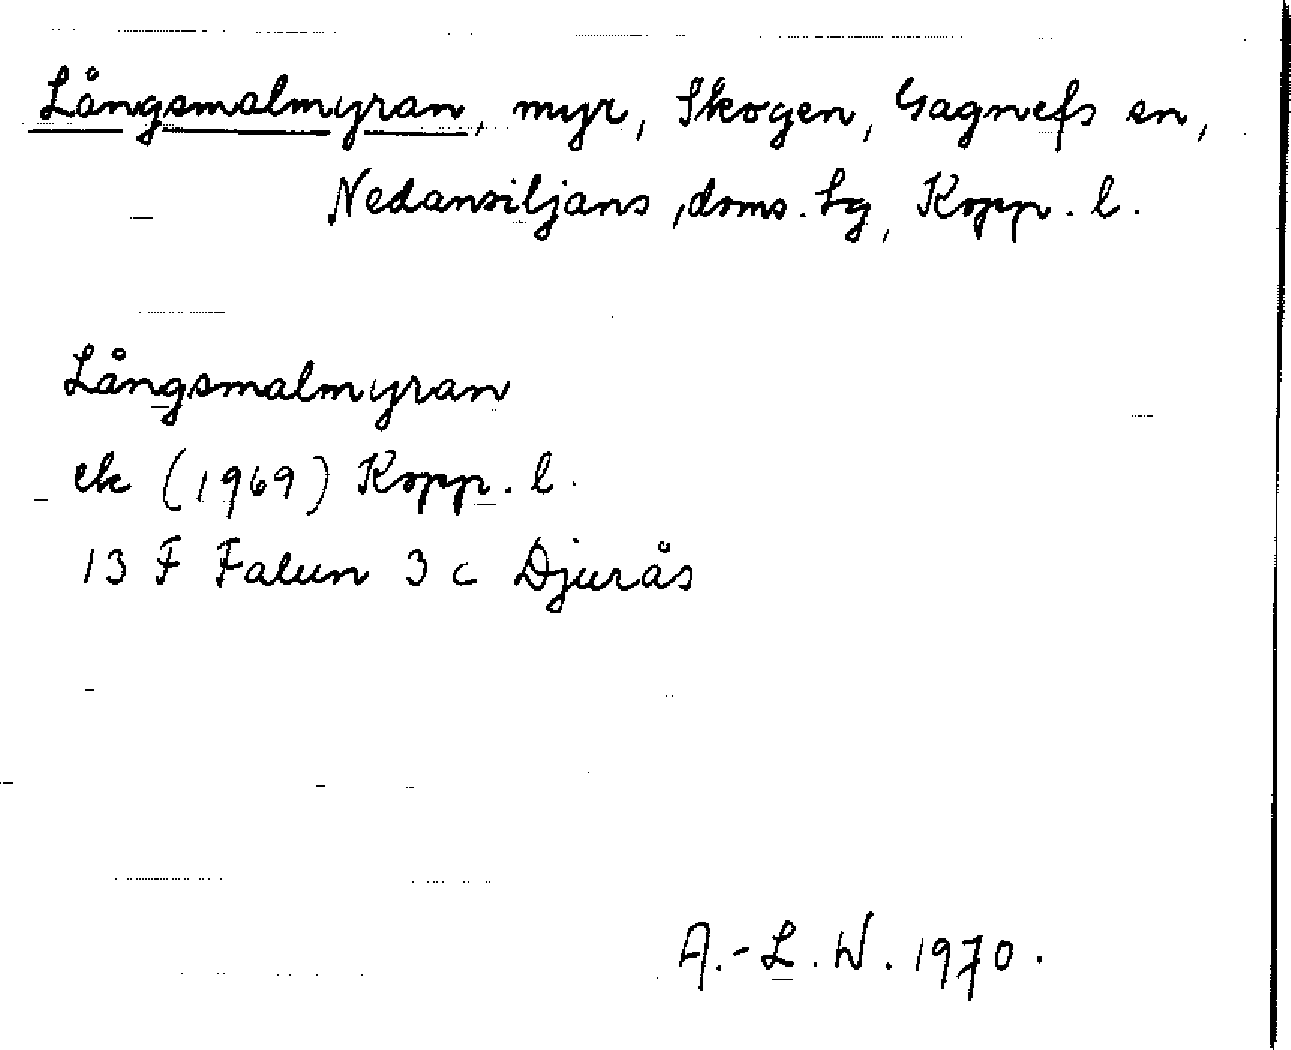 Långsmalmyran, myr, Skogen, Gagnefs sn,
Nedansiljans doms. tg, Kopp. l.
Långsmalmyran
ek (1969) Kopp. l.
13 F Falun 3 c Djurås
A.-L. W. 1970.